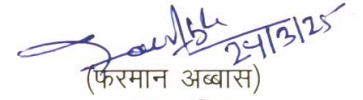 24/3/25
(फरमान अब्बास)